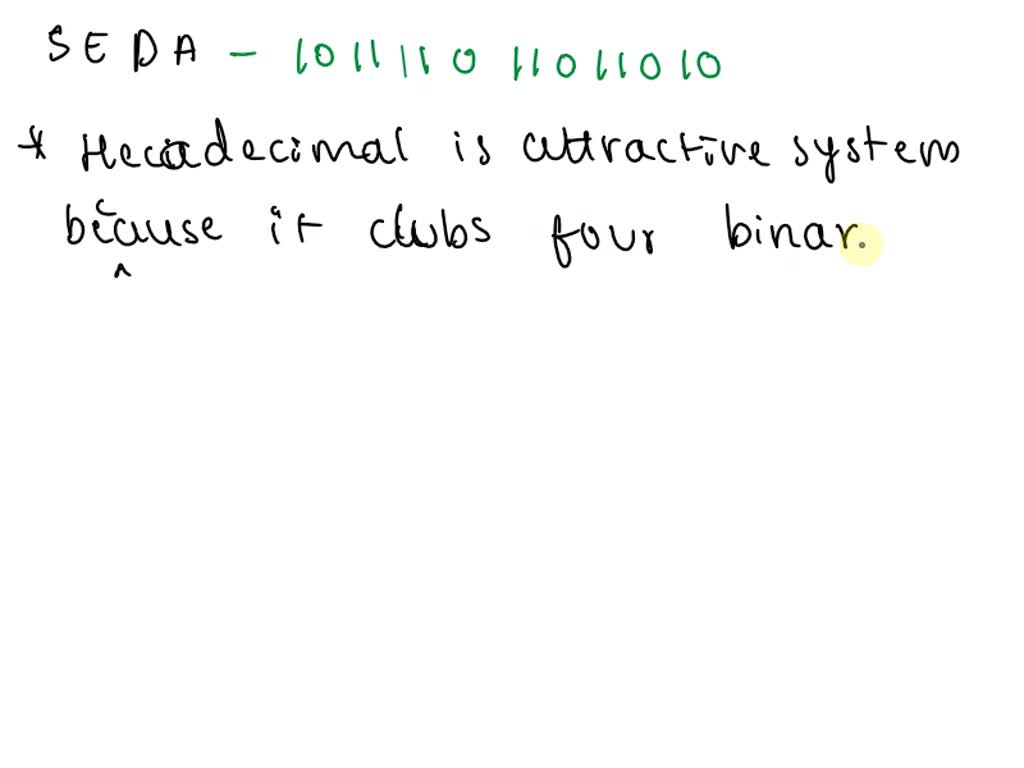 SEDA - 1011110 11011010
* Hexadecimal is attractive system
because it clubs four binar